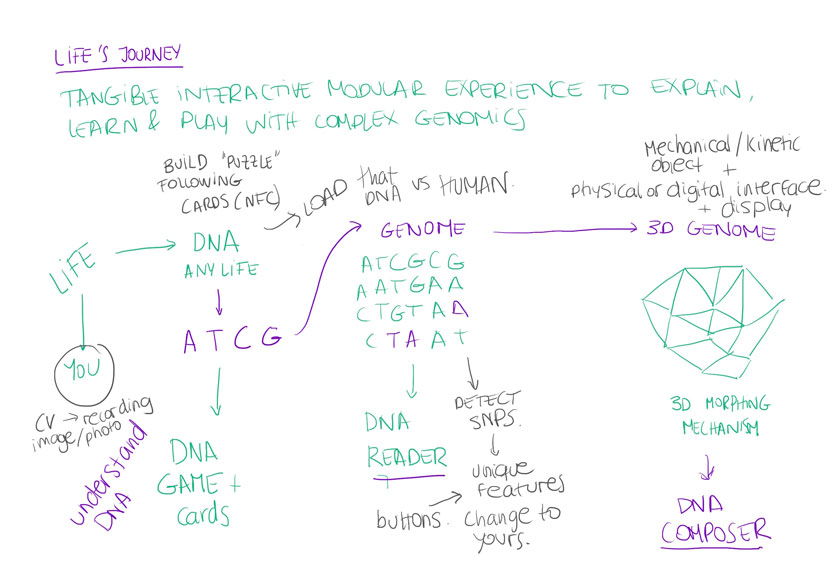 LIFE'S JOURNEY
TANGIBLE INTERACTIVE MODULAR EXPERIENCE TO EXPLAIN,
LEARN & PLAY WITH COMPLEX GENOMICS
BUILD "PUZZLE"
FOLLOWING
CARDS (NFC)
LOAD that
DNA VS HUMAN.
Mechanical/kinetic
object +
physical or digital interface
+ display
LIFE
DNA
ANY LIFE
GENOME
3D GENOME
ATCGCG
AATGAA
CTGTAA
CTAAT
A T C G
YOU
CV → recording
image/photo
understand
DNA
DNA
GAME +
cards
DNA
READER
buttons.
DETECT
SNPS.
unique
features
change to
yours.
3D MORPHING
MECHANISM
DNA
COMPOSER